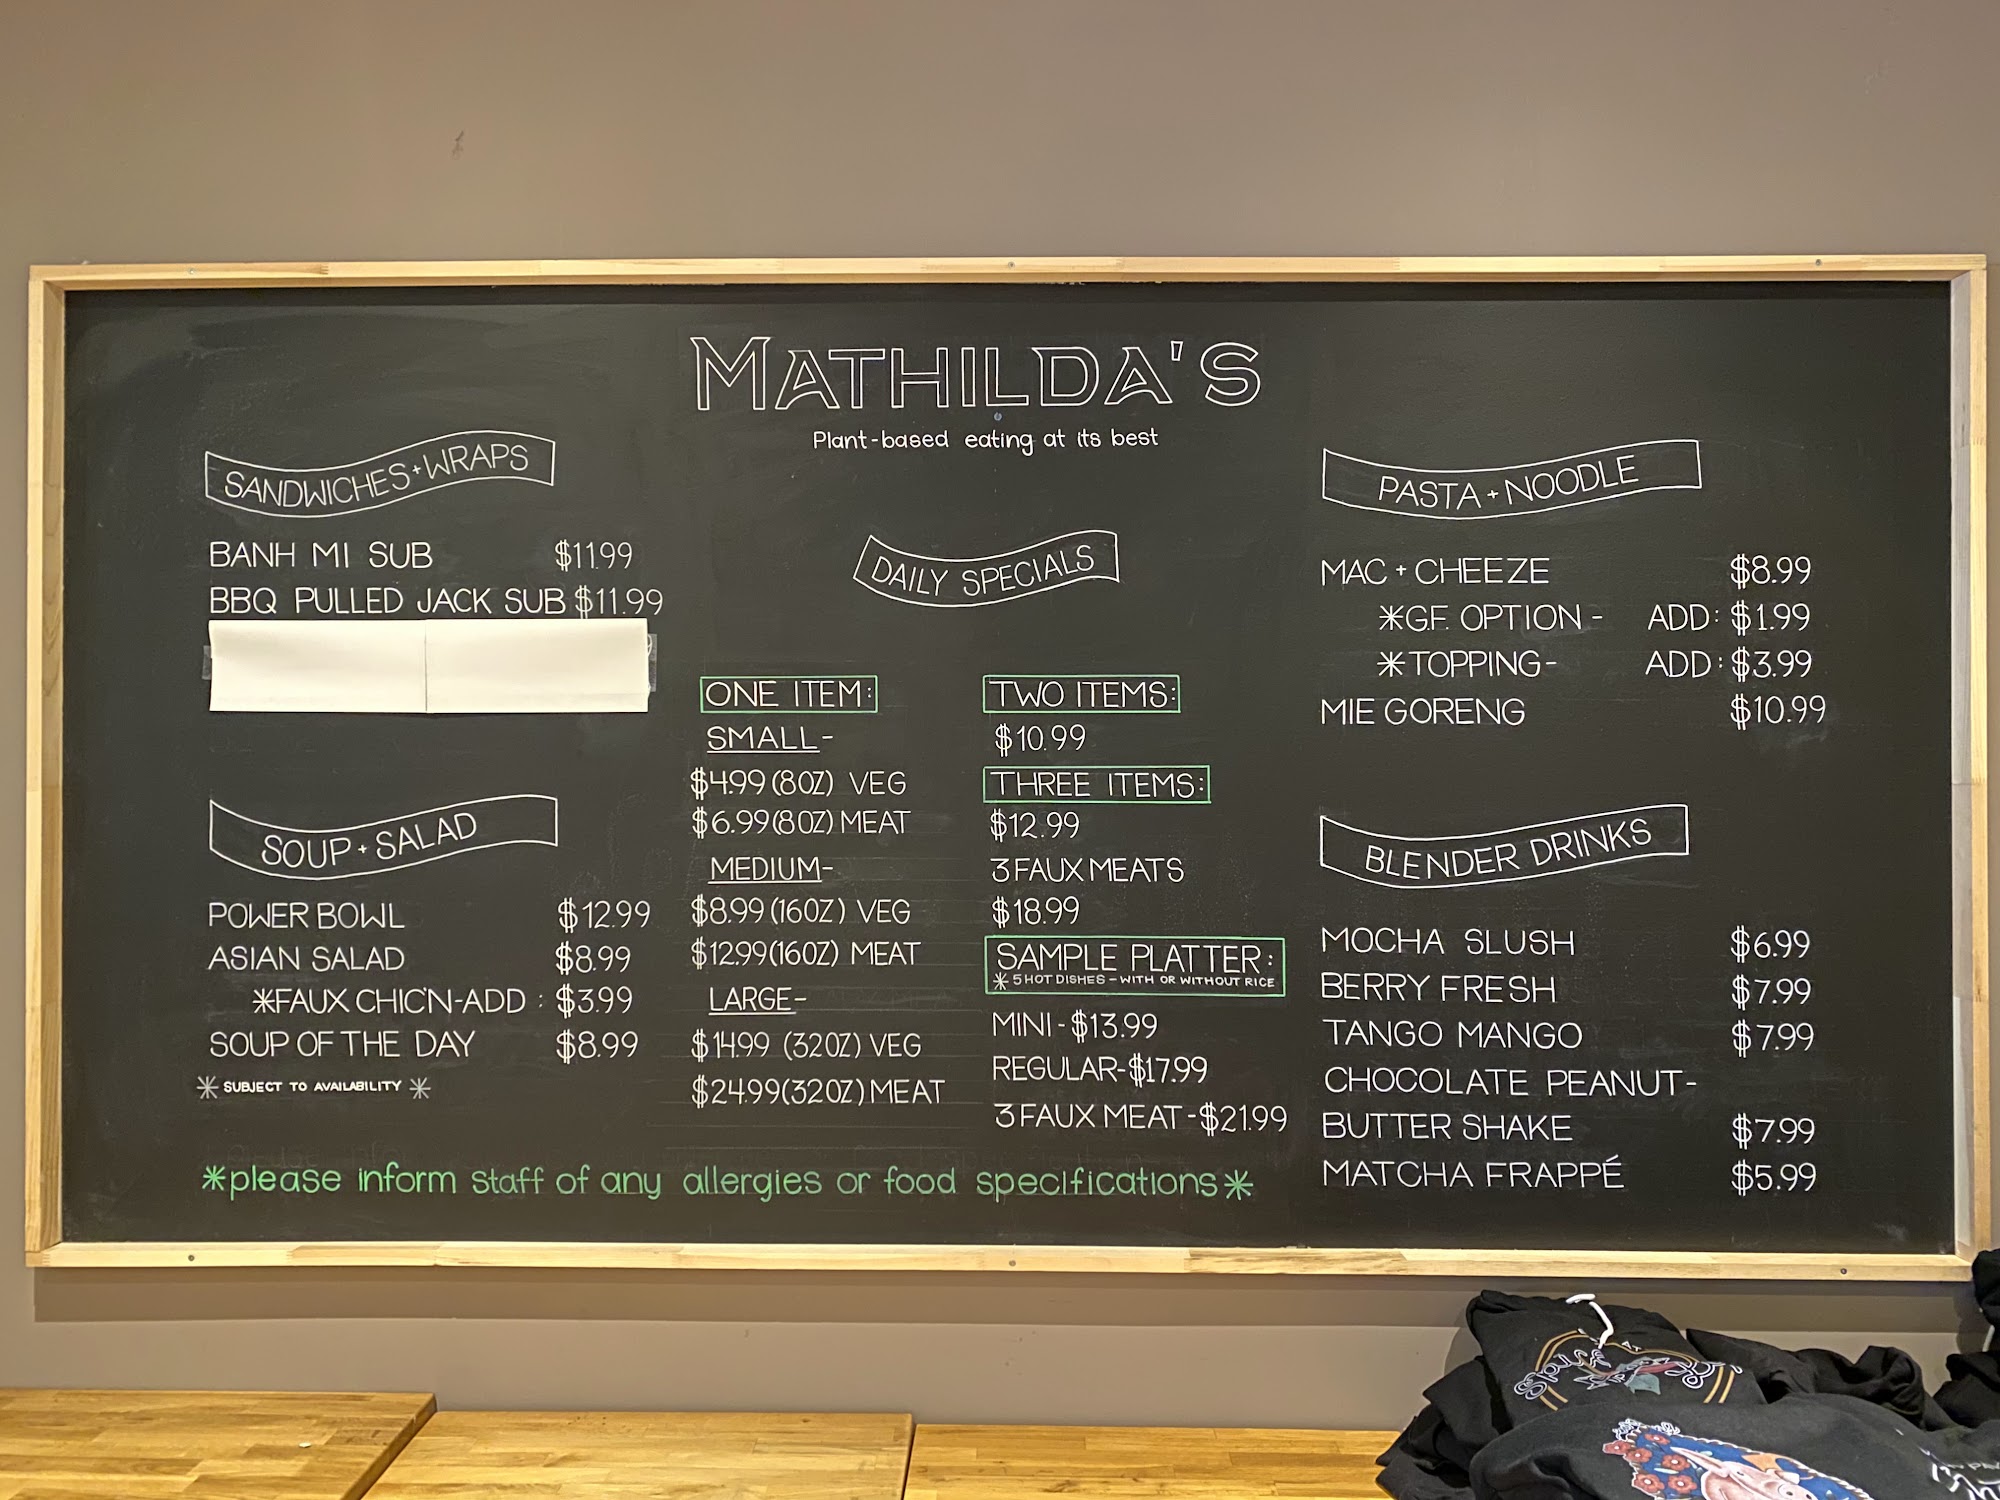 MATHILDA'S
Plant-based eating at its best
SANDWICHES + WRAPS
BANH MI SUB $11.99
BBQ PULLED JACK SUB $11.99
SOUP + SALAD
POWER BOWL $12.99
ASIAN SALAD $8.99
*FAUX CHIC'N-ADD : $3.99
SOUP OF THE DAY $8.99
* SUBJECT TO AVAILABILITY *
DAILY SPECIALS
ONE ITEM:
SMALL-
$4.99 (8OZ) VEG
$6.99 (8OZ) MEAT
MEDIUM-
$8.99 (16OZ) VEG
$12.99 (16OZ) MEAT
LARGE-
$14.99 (32OZ) VEG
$24.99 (32OZ) MEAT
TWO ITEMS:
$10.99
THREE ITEMS:
$12.99
3 FAUX MEATS
$18.99
SAMPLE PLATTER:
* 5 HOT DISHES - WITH OR WITHOUT RICE
MINI - $13.99
REGULAR- $17.99
3 FAUX MEAT - $21.99
PASTA + NOODLE
MAC + CHEEZE $8.99
*G.F. OPTION - ADD: $1.99
*TOPPING- ADD: $3.99
MIE GORENG $10.99
BLENDER DRINKS
MOCHA SLUSH $6.99
BERRY FRESH $7.99
TANGO MANGO $7.99
CHOCOLATE PEANUT-
BUTTER SHAKE $7.99
MATCHA FRAPPÉ $5.99
*please inform staff of any allergies or food specifications*